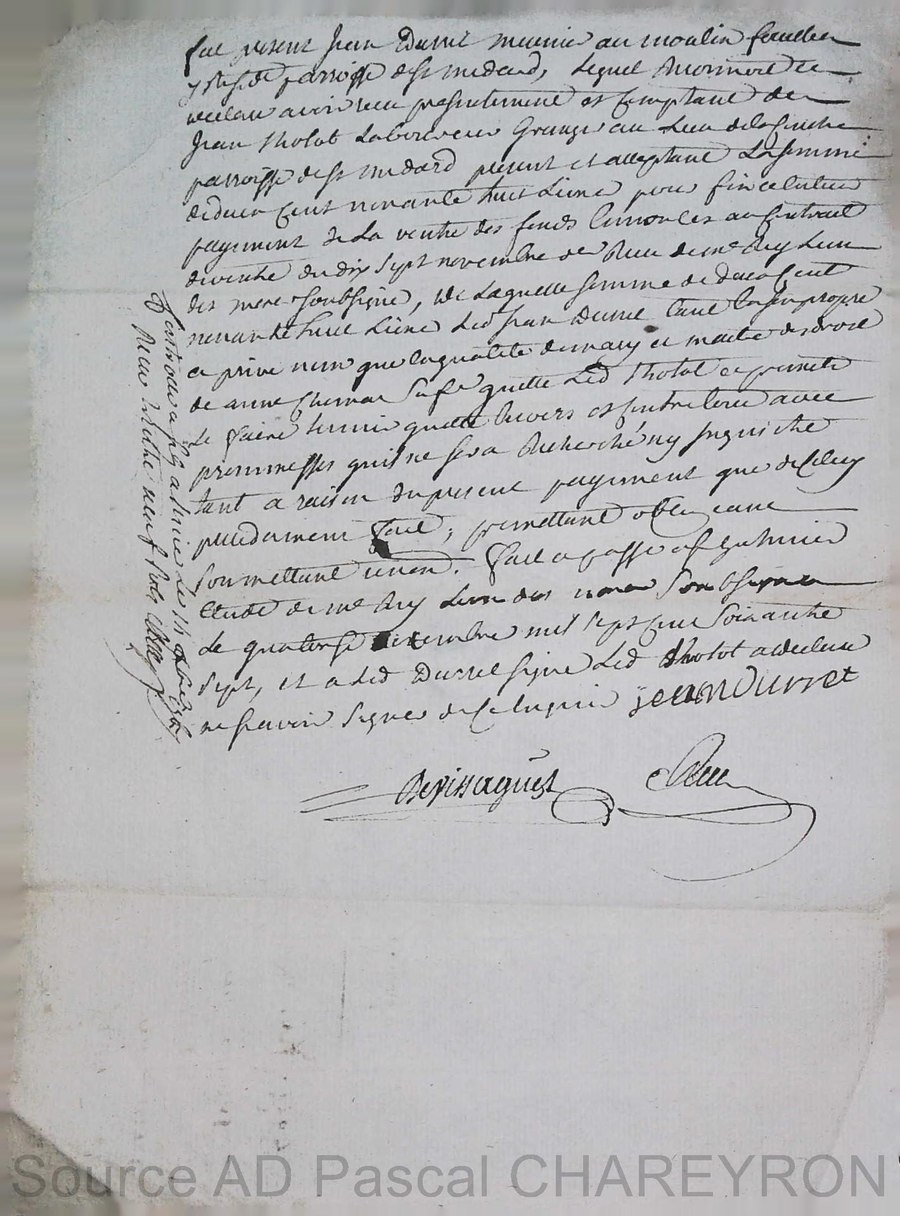 fut present Jean Durret meunier au moulin
parroisse de st medard, lequel
declaré avoir reçu presentement et comptant de
Jean tholot Laboureur Granger au Lieu de la
parroisse de st medard present et acceptant La somme
de deux Cent nonante huit Livres pour fin et entier
payement de La vente des fonds Enoncés au Contrait
de vente du dix sept novembre dr Reçu de me
des nore soubsigné, de Laquelle somme de deux Cent
nonante huit Livres Led Jean Durret tant En son propre
et privé nom que En qualité de mary et maitre des droits
de anne quitte Led tholot et promet
Le faire tenir quitte Envers et Contre tous avec
prommesses quil ne sera Recherché ny Inquietté
tant a raison du present payement que de Celuy
precedament fait, promettant obligeant
soumettant renon. fait et passé a st galmier
Etude de me nore soubsigné
Le quatorze mil sept cent soixante
sept, et a Led Durret signé Led tholot a declaré
ne scavoir signer de Ce Enquis jean Durret
Controllé a st galmier Le 14
Reçu